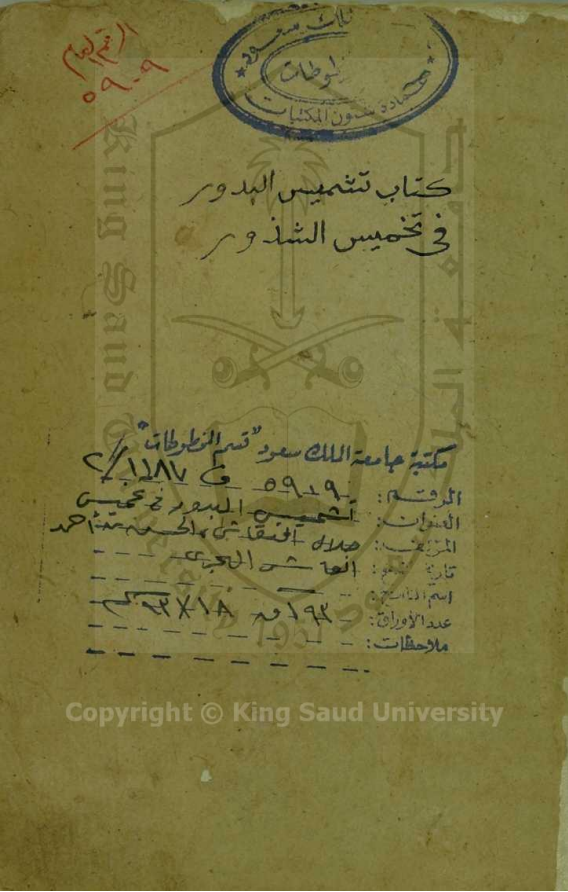 الرقم العام
٥٩٠٩
الملك سعود
المخطوطات
عمادة شئون المكتبات
كتاب تشميس البدور
في تخميس الشذور
مكتبة جامعة الملك سعود "قسم المخطوطات"
الرقم: ٥٩٠٩ ف ١١٨٧/٢
العنوان: تشميس البدور في تخميس
المؤلف: جلال النقاش، الحسن بن أحمد
تاريخ النسخ: العاشر الهجري
اسم الناسخ:
عدد الأوراق: ١٩٣ق
ملاحظات:
King Saud
1957
Copyright © King Saud University